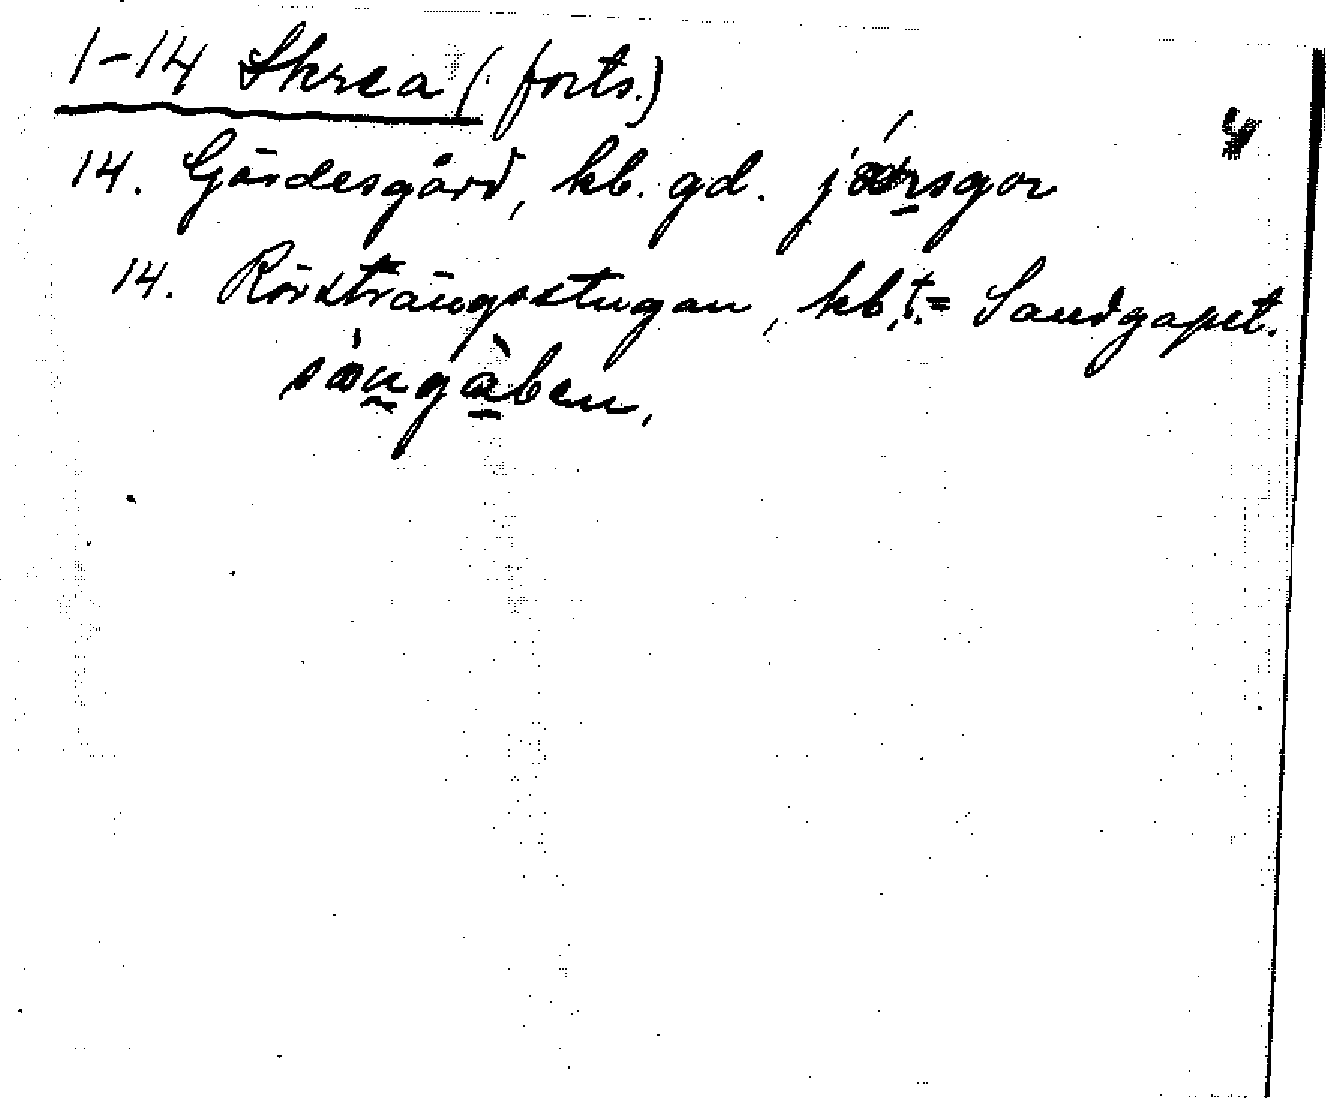 1-14 Skrea (forts.)
4
14. Gärdesgård, kb. gd. jǽrsgor
14. Rörsträngsstugan, kb. t. = Sandgapet.
sángàben.